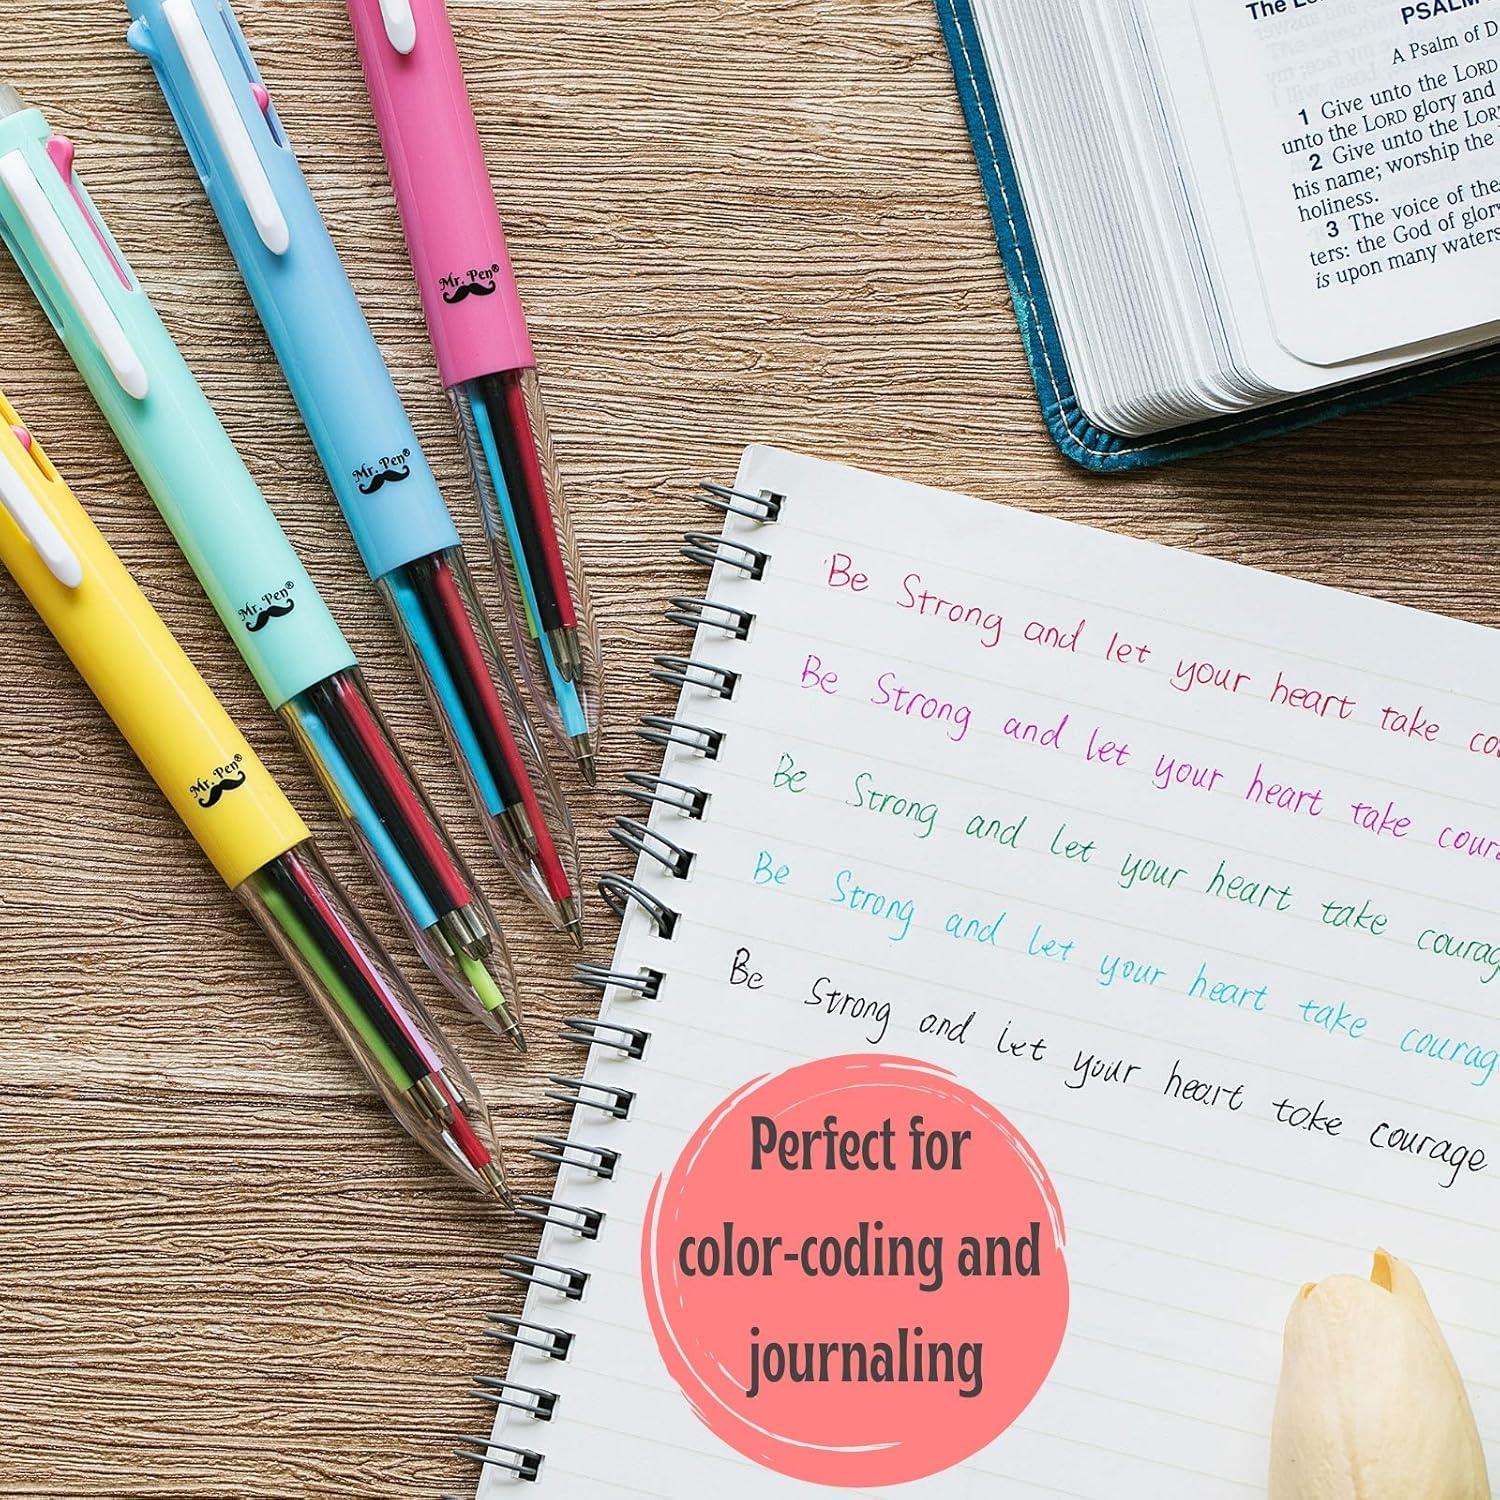 The Lo
PSALM
A Psalm of D
1 Give unto the LORD
unto the LORD glory and
2 Give unto the LOR
his name; worship the
holiness.
3 The voice of the
ters: the God of glory
is upon many waters
Mr. Pen®
Mr. Pen®
Mr. Pen®
Mr. Pen®
Be Strong and let your heart take co
Be Strong and let your heart take coura
Be Strong and let your heart take courag
Be Strong and let your heart take courag
Be Strong and let your heart take courage
Perfect for
color-coding and
journaling